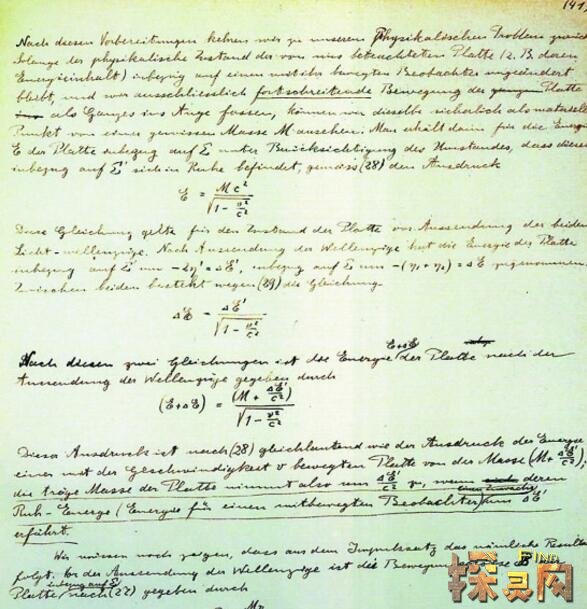 (41)
Nach diesen Vorbereitungen kehren wir zu unserem physikalischen Problem zurück
Solange der physikalische Zustand der von uns betrachteten Platte (z. B. deren
Energieinhalt) inbezug auf einen mit ihr bewegten Beobachter ungeändert
bleibt, und wir ausschliesslich fortschreitende Bewegung der Platte
als Ganzes ins Auge fassen, können wir dieselbe sicherlich als materiellen
Punkt von einer gewissen Masse M ansehen. Man erhält dann für die Energie
E der Platte inbezug auf Σ unter Berücksichtigung des Umstandes, dass diese
inbezug auf Σ' sich in Ruhe befindet, gemäss (28) den Ausdruck
E = Mc² / √(1 - v²/c²)
Diese Gleichung gelte für den Zustand der Platte vor Aussendung der beiden
Licht-wellenzüge. Nach Aussendung der Wellenzüge hat die Energie der Platte
inbezug auf Σ' um = ΔE', inbezug auf Σ um -(η₁ + η₂) = ΔE zugenommen.
Zwischen beiden besteht wegen (29) die Gleichung
ΔE = ΔE' / √(1 - v²/c²)
Nach diesen zwei Gleichungen ist die Energie E+ΔE der Platte nach der
Aussendung der Wellenzüge gegeben durch
(E+ΔE) = (M + ΔE'/c²) / √(1 - v²/c²)
Dieser Ausdruck ist nach (28) gleichlautend wie der Ausdruck der Energie
einer mit der Geschwindigkeit v bewegten Platte von der Masse (M + ΔE'/c²);
die träge Masse der Platte nimmt also um ΔE'/c² zu, wenn deren
Ruh-Energie (Energie für einen mitbewegten Beobachter) einen Zuwachs um ΔE'
erfährt.
Wir müssen noch zeigen, dass aus dem Impulssatz das nämliche Resultat
folgt. Vor der Aussendung der Wellenzüge ist die der
Platte inbezug auf Σ nach (27) gegeben durch
Mv
FIND
探灵网